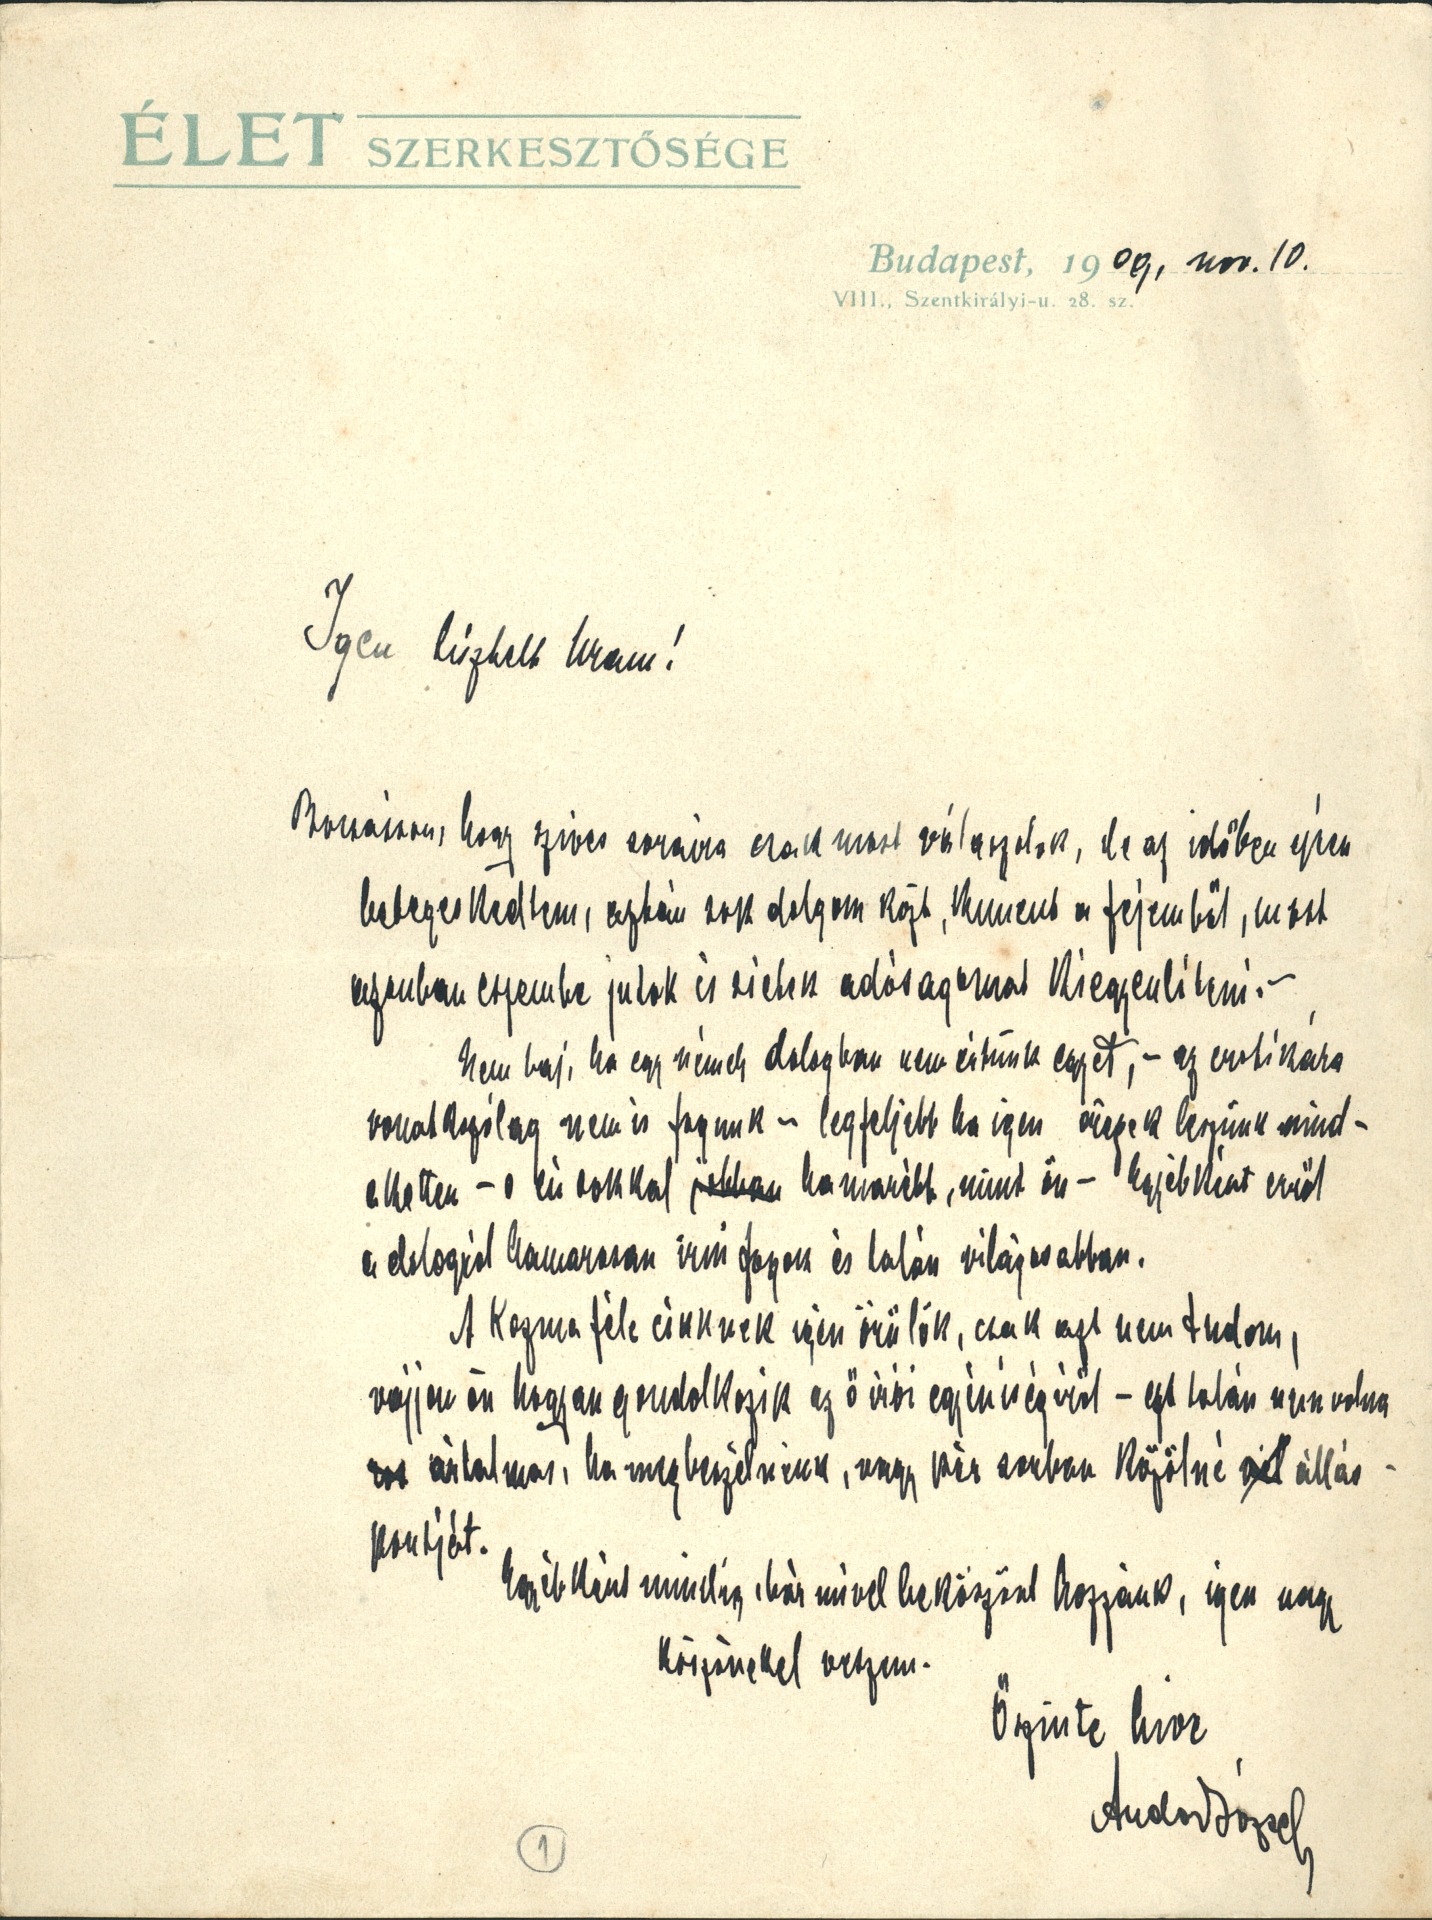 ÉLET SZERKESZTŐSÉGE
Budapest, 1909, nov. 10.
VIII., Szentkirályi-u. 28. sz.
Igen tisztelt Uram!
Bocsásson, hogy szives soraira csak most válaszolok, de az időben épen
betegeskedtem, aztán sok dolgom közt, kiment a fejemből, most
azonban eszembe jutok és sietek adósagomat kiegyenlíteni.-
Nem baj, ha egy némely dologban nem értünk egyet, - az erotikára
vonatkozólag nem is fogunk - legfeljebb ha igen öregek leszünk mind-
eketten - s én sokkal jobban hamarébb, mint ön - Egyébként erről
a dologról hamarosan irni fogok és talán világosabban.
A Kozma féle cikknek igen örülök, csak azt nem tudom,
vajjon ön hogyan gondolkozik az ő irói egyéniségéről - ezt talán nem volna
ártalmas, ha megbeszélnénk, vagy pár sorban közölné állás-
pontját.
Egyébként mindig, bár mivel beköszönt hozzánk, igen nagy
köszönettel veszem.
Őszinte hive
Andor József
1